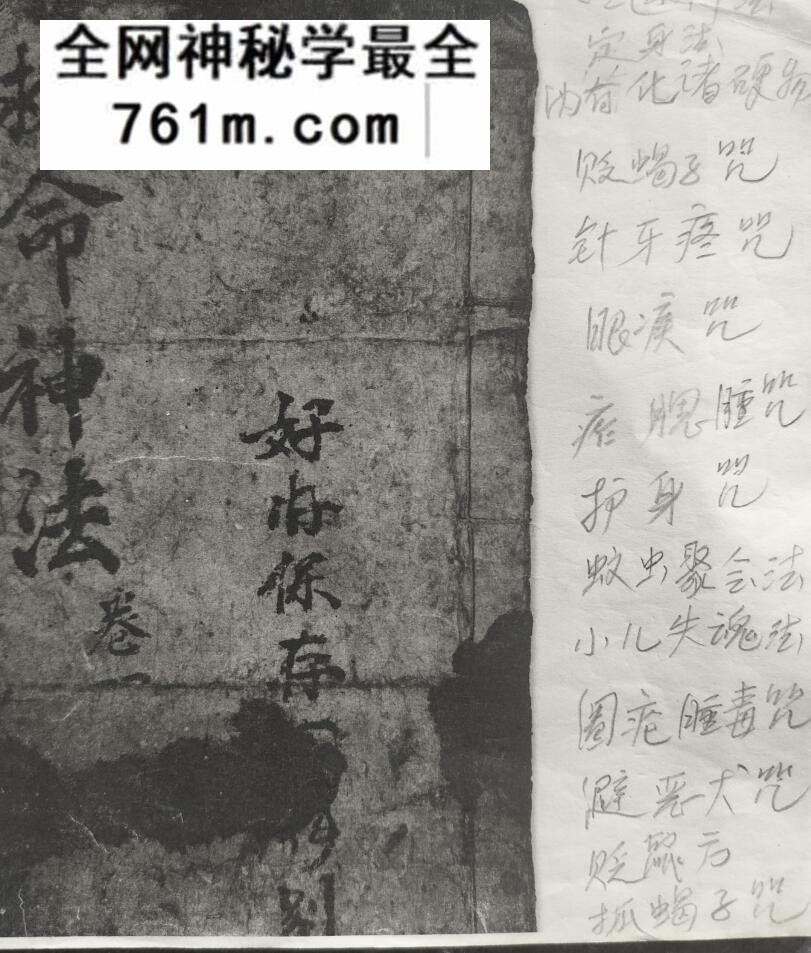 全网神秘学最全
761m.com
命神法
卷一
好好保存
定身法
化诸硬物
贬蝎子咒
针牙疼咒
眼咒
腮腫咒
护身咒
蚊虫聚会法
小儿失魂法
圈疮腫毒咒
避恶犬咒
贬
抓蝎子咒